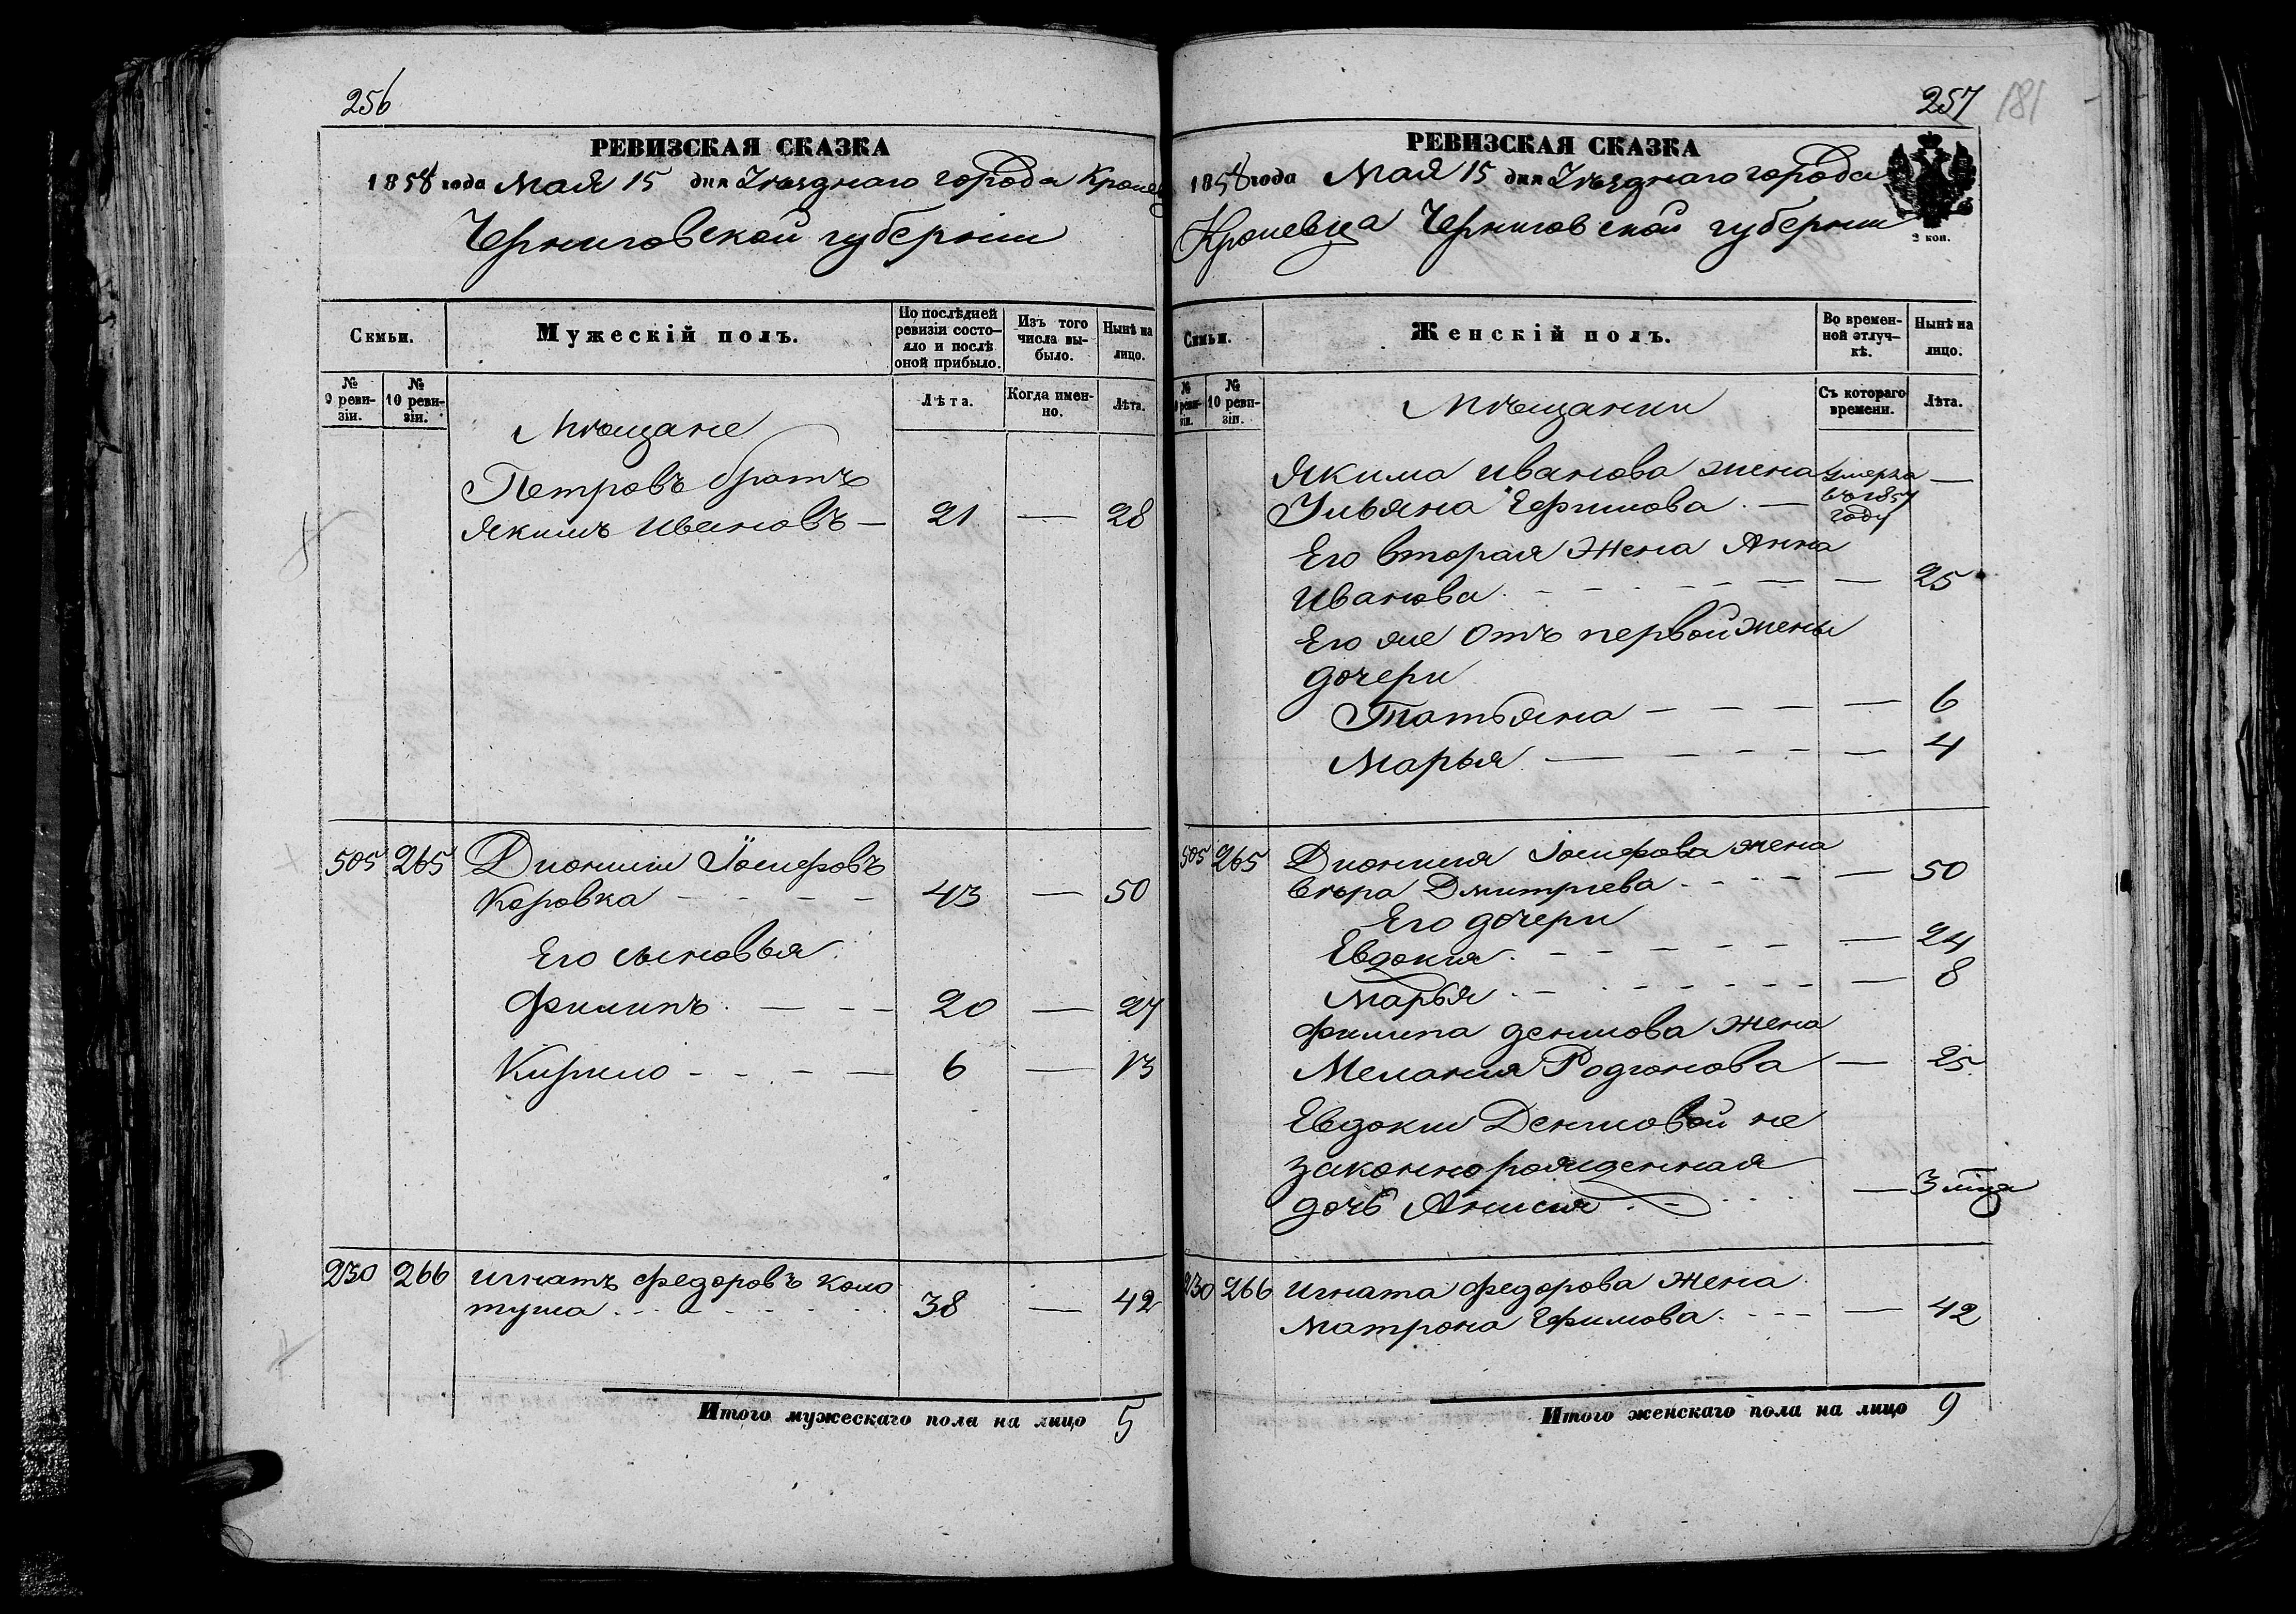 256
РЕВИЗСКАЯ СКАЗКА
1858 года Мая 15 дня Уѣзднаго города Кролев
Черниговской губерніи
Семьи.
Мужескій полъ.
По послѣдней ревизіи состояло и послѣ оной прибыло.
Изъ того числа выбыло.
Нынѣ на лицо.
№ 9 ревизіи.
№ 10 ревизіи.
Лѣта.
Когда именно.
Лѣта.
Мѣщане
Петровъ братъ
Якимъ Ивановъ — 21 — 28
505 265 Дионисій Іосифовъ
Коровка - - - - 43 — 50
Его сыновья
Филипъ. — - - 20 — 27
Кирило - - - — 6 — 13
230 266 Игнатъ Федоровъ Коло
туша 38 — 42
Итого мужескаго пола на лицо 5
257 181
РЕВИЗСКАЯ СКАЗКА
1858 года Мая 15 дня Уѣзднаго города
Кролевца Черниговской губерніи
2 коп.
Семьи.
Женскій полъ.
Во временной отлучкѣ.
Нынѣ на лицо.
№ 9 ревизіи.
№ 10 ревизіи.
Съ котораго времени.
Лѣта.
Мѣщанки
Якима Иванова жена умерла —
Ульяна Ефимова — въ 1857 году
Его вторая жена Анна
Иванова - - - - — 25
Его же отъ первой жены
дочери
Татьяна - - - — 6
Марья — - - - — 4
505 265 Дионисія Іосифова жена
Вѣра Дмитріева - - - — 50
Его дочери
Евдокія - - - - — 24
Марья - - - - — 8
Филипа Денисова жена
Меланія Родіонова — 25
Евдокіи Денисовой не
законнорожденная
дочь Анисія — 3 мца
230 266 Игната Федорова жена
Матрона Ефимова - - - — 42
Итого женскаго пола на лицо 9